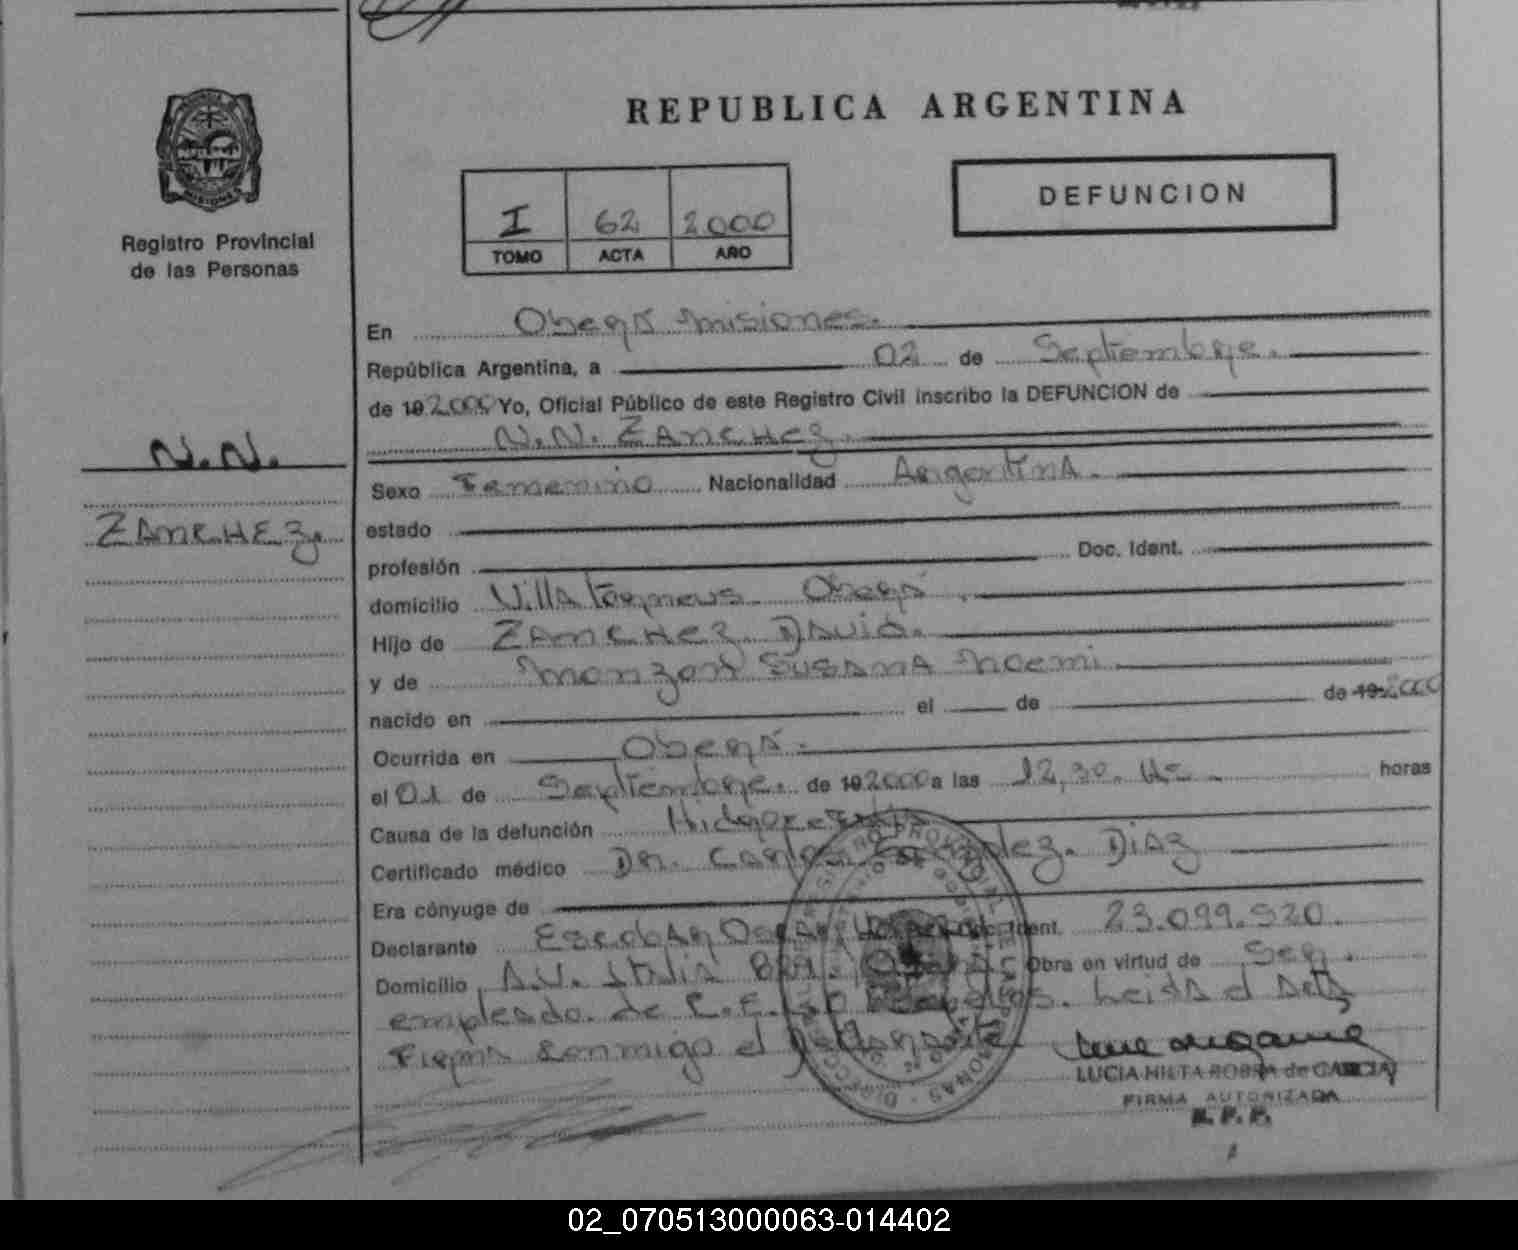 REPUBLICA ARGENTINA
DEFUNCION
I 62 2000
TOMO ACTA AÑO
Registro Provincial
de las Personas
N.N.
ZANCHEZ.
En Oberá Misiones.
República Argentina, a 02 de Septiembre.
de 19 2000 Yo, Oficial Público de este Registro Civil inscribo la DEFUNCION de
N.N. ZANCHEZ.
Sexo Femenino Nacionalidad Argentina.
estado
profesión Doc. Ident.
domicilio Villa Oberá.
Hijo de ZANCHEZ DAVID.
y de Monzon SUSANA Noemi
nacido en el de de 19 2000
Ocurrida en Oberá.
el 01 de Septiembre. de 19 2000 a las 12,30. Hs. horas
Causa de la defunción
Certificado médico Dr. Carlos Diaz
Era cónyuge de
Declarante Escobar Oscar Ident. 23.099.520.
Domicilio AV. Italia Obra en virtud de Ser.
empleado de C.E.L.O. Leida el Acta
Firma conmigo el
LUCIA HILTA ROBRA de GARCIA
FIRMA AUTORIZADA
R.P.P.
02_070513000063-014402